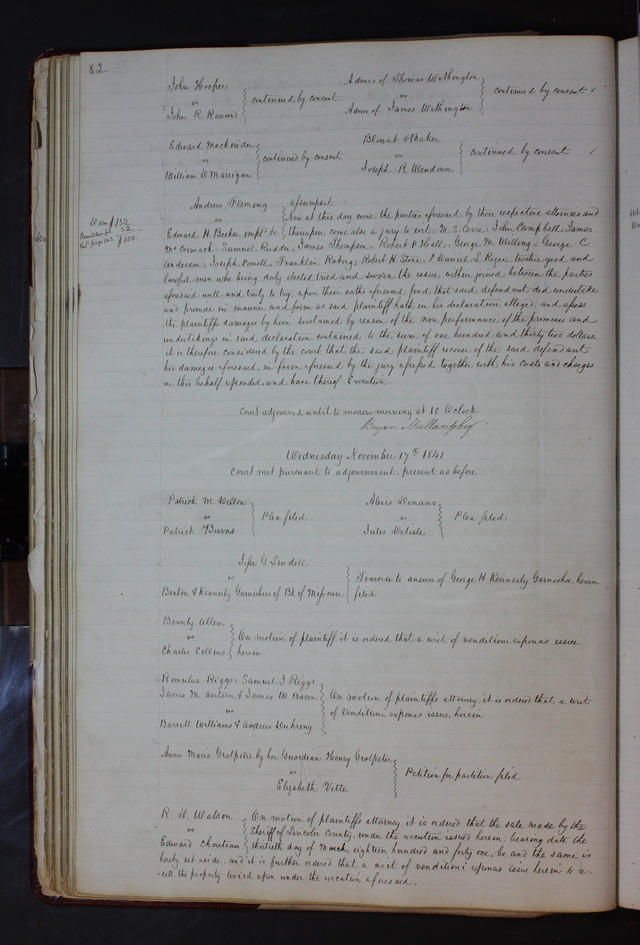 82
John Hooper
vs
John R Rowand
continued by consent
Admrs of Thomas Withington
vs
Admr of James Withington
continued by consent
Edward Mackinder
vs
William D Marrigan
continued by consent
Blount & Baker
vs
Joseph R Wendover
continued by consent
Andrew Fleming
vs
Edward H Beebee
assumpsit
Dam $132
32
$100
Now at this day come the parties aforesaid by their respective attornies and
thereupon come also a jury to wit. M. S. Cerre, John Campbell James
McCormack Samuel Rudder, James Thompson, Robert P Hall, George M Welling, George C
Anderson, Joseph Powell, Franklin Raborg, Robert H Stone, & Daniel L twelve good and
lawful men who being duly elected tried and sworn the issue within joined between the parties
aforesaid well and truly to try, upon their oaths aforesaid find that said defendant did undertake
and promise in manner and form as said plaintiff hath in his declaration alleged, and assess
the plaintiffs damages by him sustained by reason of the non performance of the promises and
undertakings in said declaration contained to the sum of one hundred and thirty two dollars.
it is therefore considered by the court that the said plaintiff recover of the said defendant
his damages aforesaid in form aforesaid by the jury assessed together with his costs and charges
in this behalf expended, and have thereof Execution
Court adjourned until to morrow morning at 10 OClock
Bryan Mullanphy
Wednesday November 17th 1841
Court met pursuant to adjournment, present as before
Patrick M Dillon
vs
Patrick Burns
Plea filed
Alexis Donaux
vs
Jules Delisle
Plea filed
Jesse G Lindell
vs
Benton & Kennerly Garnishees of Bk of Missouri
Traverse to answer of George H Kennerly Garnishee herein
filed
Beverly Allen
vs
Charles Collins
On motion of plaintiff it is ordered that a writ of venditioni exponas issue
herein
Romulus Riggs Samuel J Riggs
James M Aertsen & James W Bacon
vs
Barrett Williams & Andrew Duhring
On motion of plaintiffs attorney, it is ordered that a writ
of Venditioni exponas issue herein
Anna Maria Grolpeter by her Guardian Henry Grolpeter
vs
Elizabeth Vette
Petition for partition filed
R. D. Watson
vs
Edward Chouteau
On motion of plaintiffs attorney it is ordered that the sale made by the
Sheriff of Lincoln County, under the execution issued herein, bearing date the
thirtieth day of March, eighteen hundred and forty one, be and the same is
hereby set aside, and it is further ordered that a writ of venditioni exponas issue herein to re-
-sell the property levied upon under the execution aforesaid.